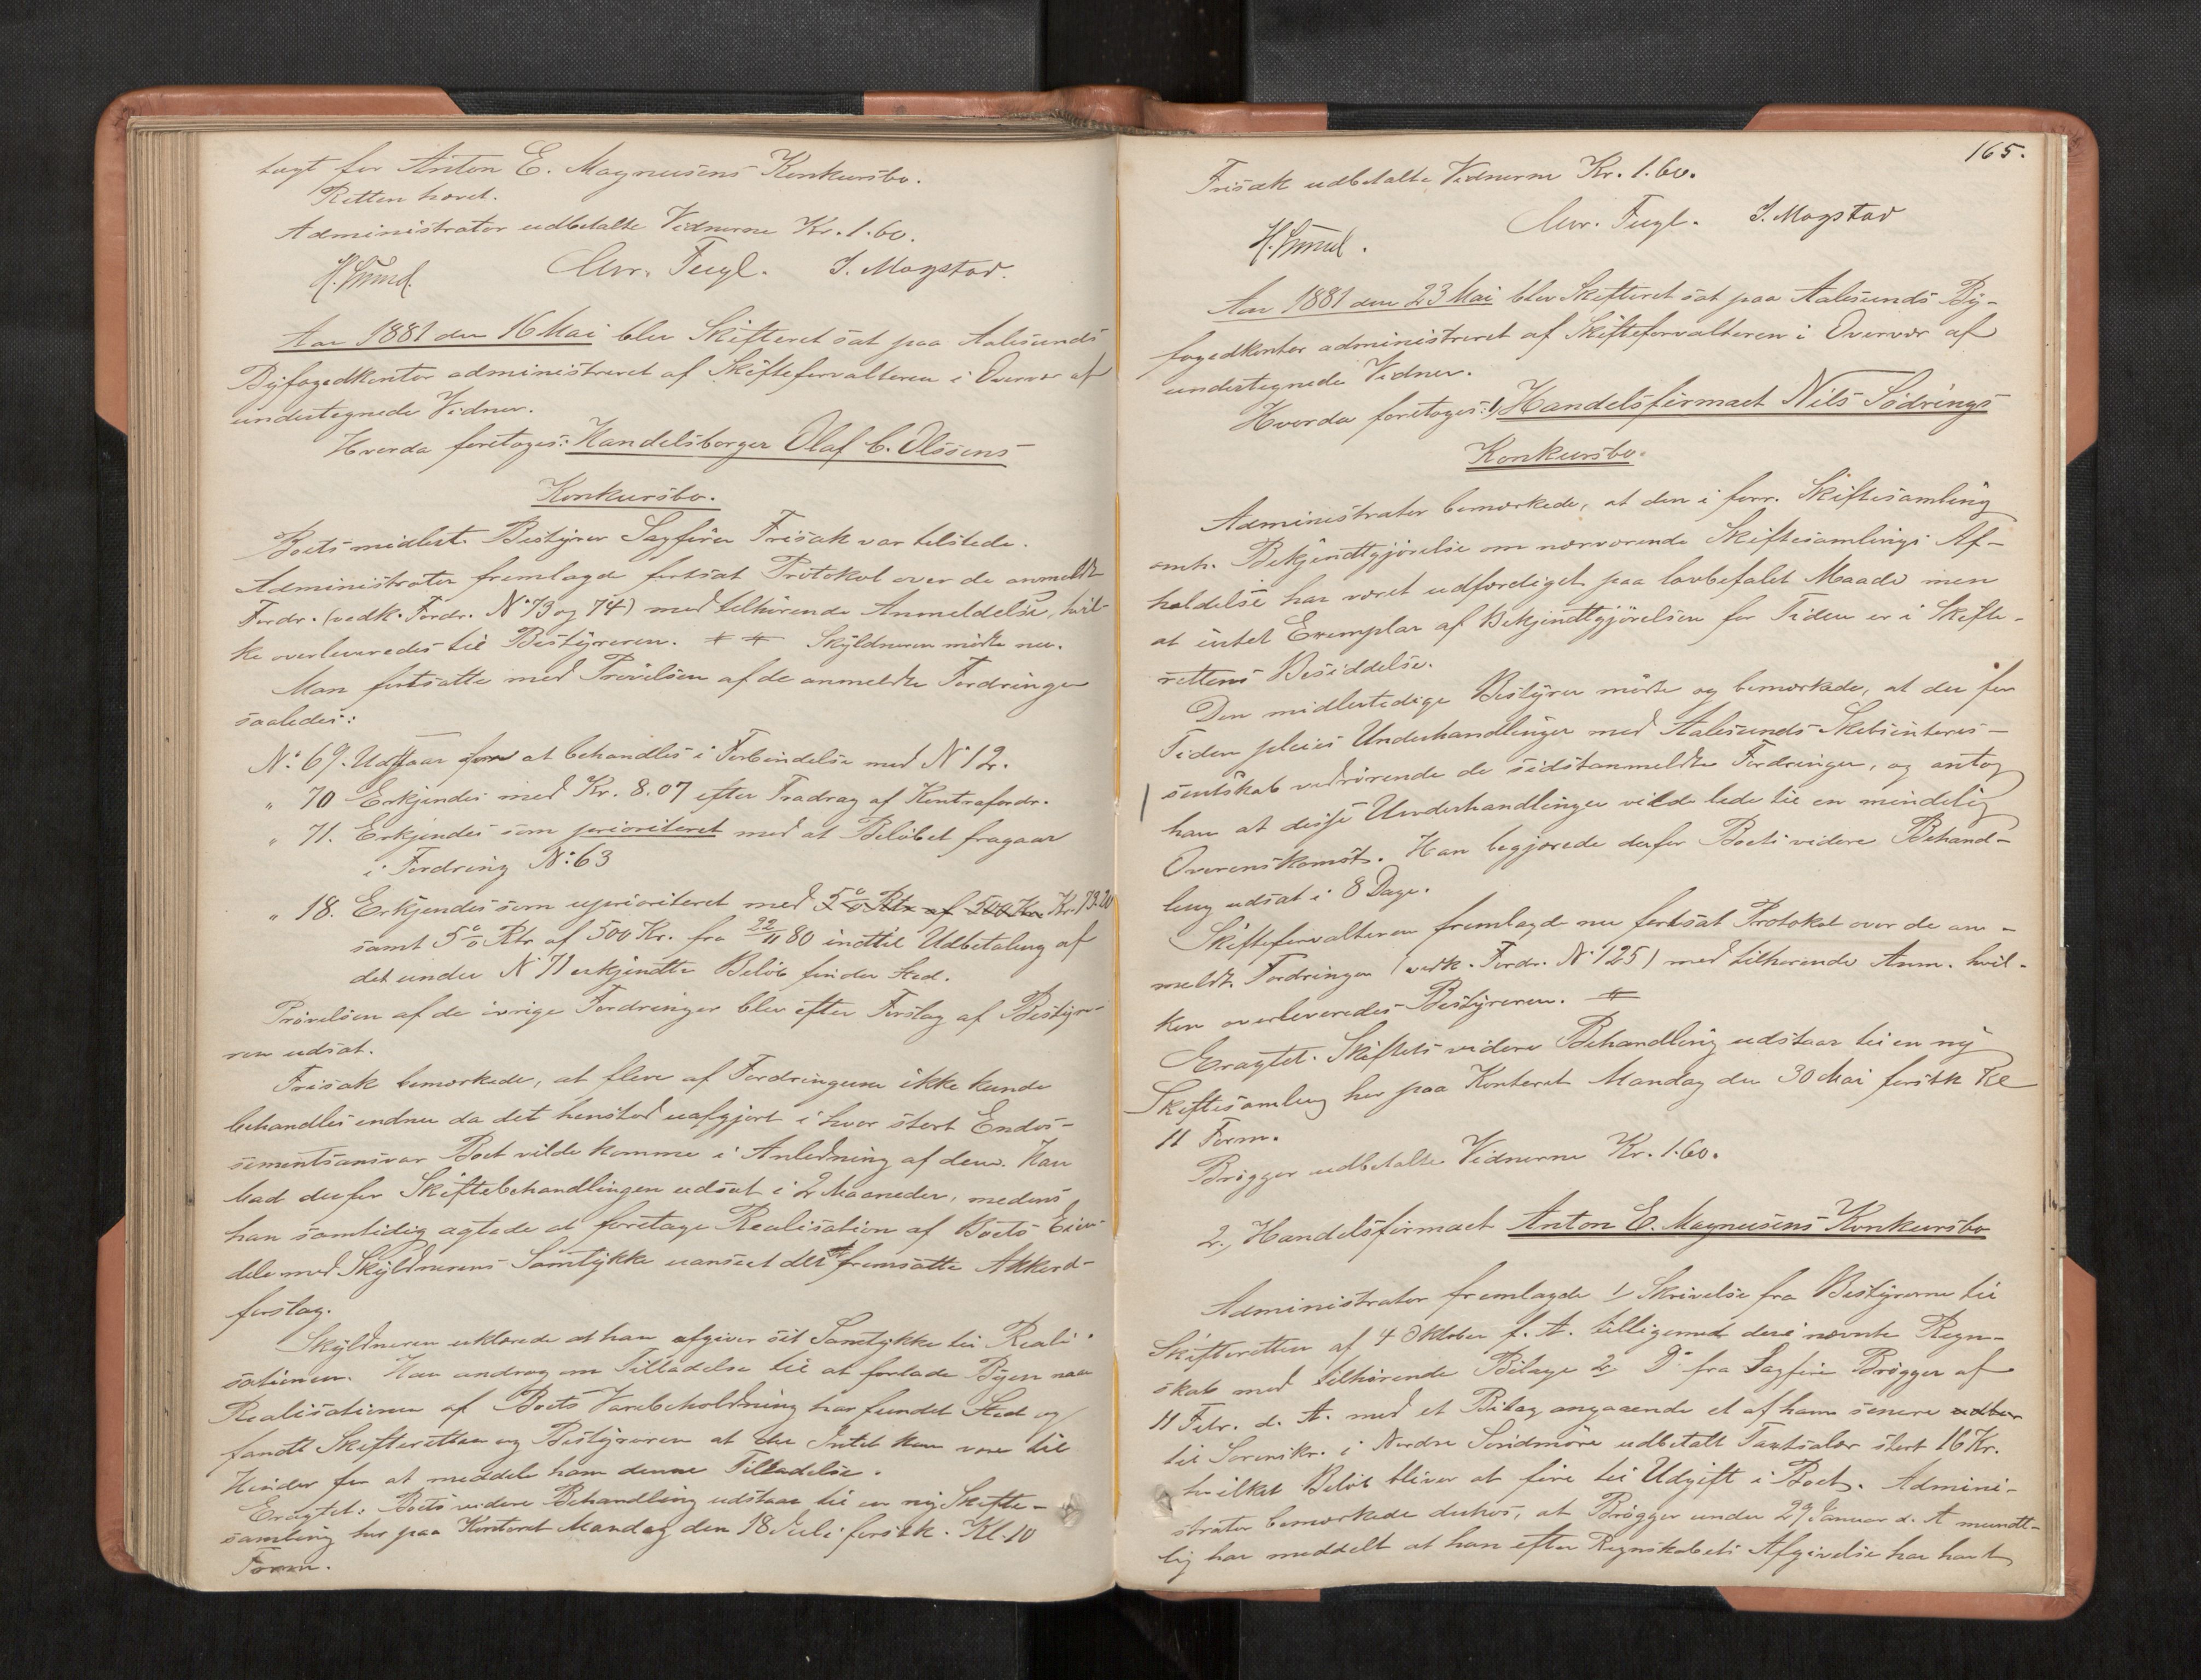 tagt for Anton E. Magnusens Konkursbo.
Retten hævet.
Administrator udbetalte Vidnerne Kr. 1.60.
Chr. Fugl. I. Mogstad.
Aar 1881 den 16 Mai blev Skifteret sat paa Aalesunds
Byfogedkontor administreret af Skifteforvalteren i Overvær af
undertegnede Vidner.
Hvorda foretoges: Handelsborger Olaf C. Olsens
Konkursbo.
Boets midlert. Bestyrer Sagfører Frisak var tilstede.
Administrator fremlagde fortsat Protokol over de anmeldte
Fordr. (vedk. Fordr. No 73 og 74) med tilhörende Anmeldelse, hvil-
ke overleveredes til Bestyreren. # # Skyldneren mödte nu.
Man fortsatte med Prövelsen af de anmeldte Fordringer
saaledes:
No. 69. Udstaar for at behandles i Forbindelse med No 12.
" 70 Erkjendes med Kr. 8.07 efter Fradrag af Kontrafordr.
" 71. Erkjendes som prioriteret med at Belöbet fragaar
i Fordring No. 63
" 18. Erkjendes som uprioriteret med 5% Rtr af 500 Kr Kr. 73.20
samt 5% Rtr af 500 Kr. fra 22/11 80 indtil Udbetaling af
det under No 71 erkjendte Belöb finder Sted.
Prövelsen af de övrige Fordringer blev efter Forslag af Bestyre-
ren udsat.
Frisak bemærkede, at flere af Fordringerne ikke kunde
behandles endnu da det henstod uafgjort i hvor stort Endos-
sementsansvar Boet vilde komme i Anledning af dem. Han
bad derfor Skiftebehandlingen udsat i 2 Maaneder, medens
han samtidig agtede at foretage Realisation af Boets Eien-
dele med Skyldnerens Samtykke uanseet det fremsatte Akkord-
forslag.
Skyldneren erklærede at han afgiver sit Samtykke til Reali-
sationen. Han androg om Tilladelse til at forlade Byen naar
Realisationen af Boets Varebeholdning har fundet Sted og
fandt Skifteretten og Bestyreren at der Intet kan være til
Hinder for at meddele ham denne Tilladelse.
Eragtet: Boets videre Behandling udstaar til en ny Skifte-
samling her paa Kontoret Mandag den 18 Juli förstk. Kl. 10
Form.
165.
Frisak udbetalte Vidnerne Kr. 1.60.
Chr. Fugl. I. Mogstad
Aar 1881 den 23 Mai blev Skifteret sat paa Aalesunds By-
fogedkontor administreret af Skifteforvalteren i Overvær af
undertegnede Vidner.
Hvorda foretoges: 1, Handelsfirmaet Nils Södrings
Konkursbo.
Administrator bemærkede, at den i forr. Skiftesamling
omh. Bekjendtgjörelse om nærværende Skiftesamlings Af-
holdelse har været udfærdiget paa lovbefalet Maade men
at intet Exemplar af Bekjendtgjörelsen for Tiden er i Skifte-
rettens Besiddelse.
Den midlertidige Bestyrer mödte og bemærkede, at der for
Tiden pleies Underhandlinger med Aalesunds Skibsinteres-
sentskab vedrörende de sidstanmeldte Fordringer, og antog
han at disse Underhandlinger vilde lede til en mindelig
Overenskomst. Han begjærede derfor Boets videre Behand-
ling udsat i 8 Dage.
Skifteforvalteren fremlagde nu fortsat Protokol over de an-
meldte Fordringer (vedk. Fordr. No 125) med tilhörende Anm. hvil-
ken overleveredes Bestyreren. #
Eragtet. Skiftets videre Behandling udstaar til en ny
Skiftesamling her paa Kontoret Mandag den 30 Mai förstk Kl
11 Form.
Brögger udbetalte Vidnerne Kr. 1.60.
2, Handelsfirmaet Anton E. Magnusens Konkursbo
Administrator fremlagde 1/ Skrivelse fra Bestyrerne til
Skifteretten af 4 Oktober f. A. tilligemed deri nævnte Regn-
skab med tilhörende Bilage 2/ Do fra Sagförer Brögger af
11 Febr. d. A. med et Bilag angaaende et af ham senere udbe
til Sorenskr. i Nordre Söndmöre udbetalt Taxtsalær stort 16 Kr.
hvilket Belöb bliver at före til Udgift i Boet. Admini-
strator bemærkede derhos, at Brögger under 29 Januar d. A mundt-
lig har meddelt at han efter Regnskabets Afgivelse har havt